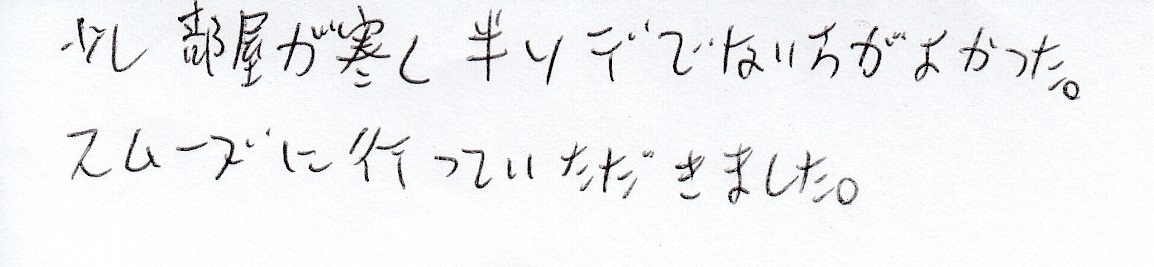 少し部屋が寒く半ソデでないちがよかった。
スムーズに行っていただきました。